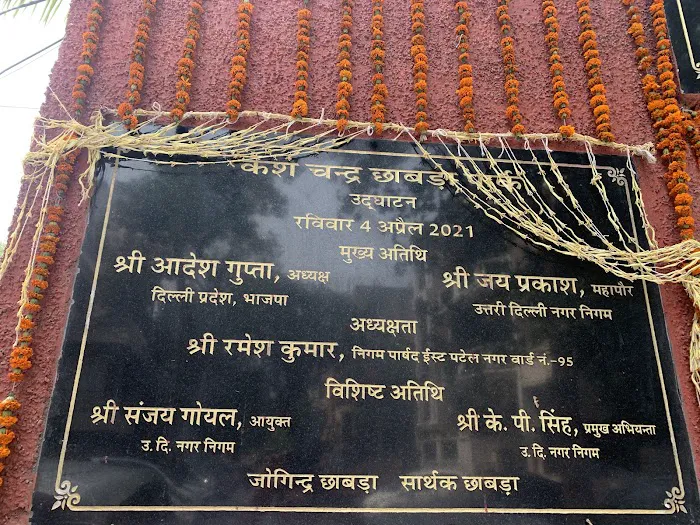 चन्द्र छाबड़ा पार्क
उद्‌घाटन
रविवार 4 अप्रैल 2021
मुख्य अतिथि
श्री आदेश गुप्ता, अध्यक्ष
दिल्ली प्रदेश, भाजपा
श्री जय प्रकाश, महापौर
उत्तरी दिल्ली नगर निगम
अध्यक्षता
श्री रमेश कुमार, निगम पार्षद ईस्ट पटेल नगर वार्ड नं.-95
विशिष्ट अतिथि
श्री संजय गोयल, आयुक्त
उ. दि. नगर निगम
श्री के. पी. सिंह, प्रमुख अभियन्ता
उ. दि. नगर निगम
जोगिन्द्र छाबड़ा सार्थक छाबड़ा